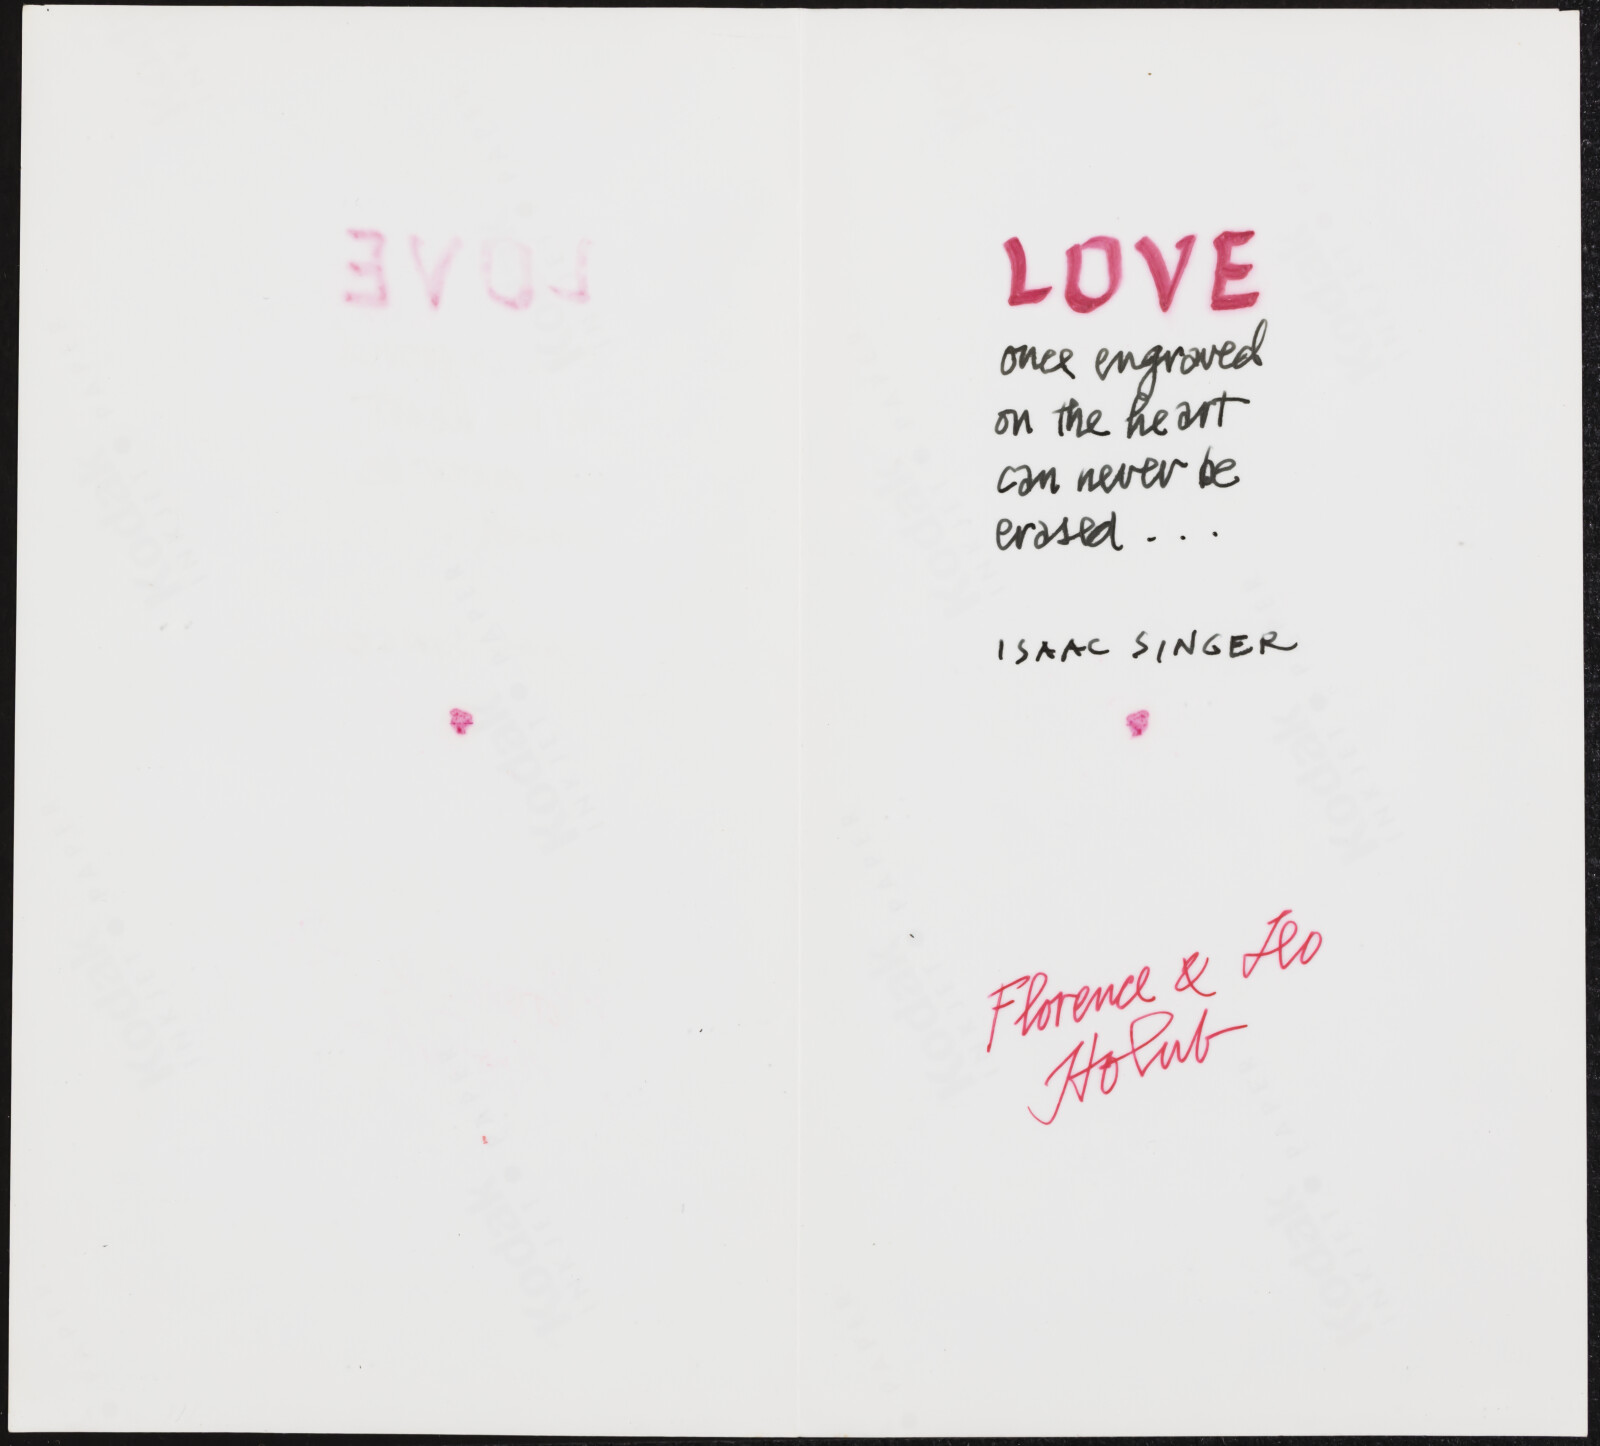 LOVE
once engraved
on the heart
can never be
erased . . .
ISAAC SINGER
Florence & Leo
Holub